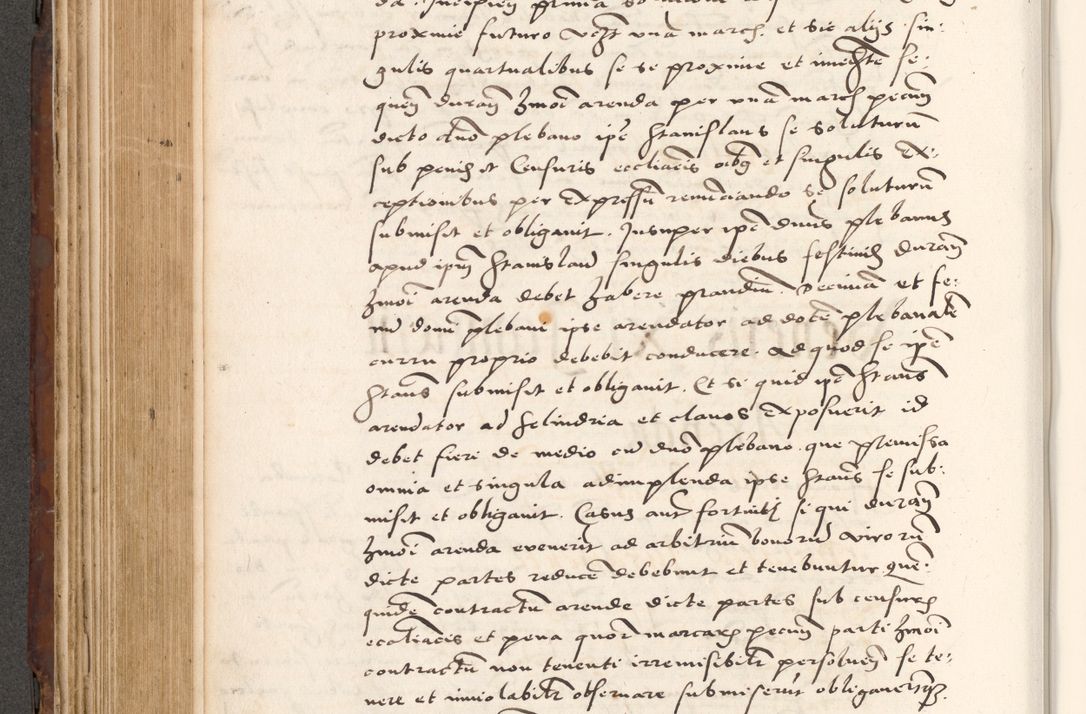 proxime futuro vcz unā march. et sic alijs sin-
gulis quartualibus se se proxime et imediate se-
quen duran hmōi arenda per unā march pecun
dicto dno plebano ipe Stanislaus se soluturū
sub penis et Censuris ecclīacis oībꝫ et singulis Ex-
ceptionibus per Expressū renunciando se soluturū
submisit et obligauit. Insuper ipe dnūs plebanus
apud ipm Stanislaū singulis diebus festiuis durañ
hmōi arenda debet habere prandiū. Decimā et fe-
nū domū plebani ipse arendator ad dotē plebanalē
curru proprio debebit conducere. Ad quod se ipe
Stans submisit et obligauit. Et si quid ipe Stans
arendator ad selindria et clauos Exposuerit id
debet fieri de medio cū dno plebano. que premissa
omnia et singula adimplenda ipse Stans se sub-
misit et obligauit. Casus aut fortuiti si qui durañ
hmōi arenda euenerit ad arbitriū bonorū virorū
dicte partes reducē debebunt et tenebuntur. quē-
quidē contractū arende dicte partes sub censuris
ecclīacis et pena quor marcarꝫ pecun parti hmōi
contractū non tenenti irremisibilr persoluen se te-
nere et inuiolabilr obseruare submiserūt obligauerūtqꝫ.